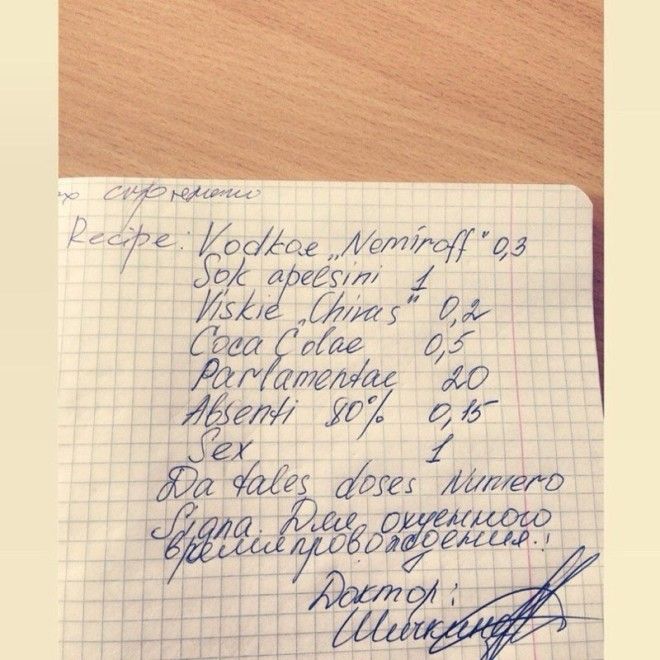 Recipe: Vodkae „Nemiroff" 0,3
Sok apelsini 1
Viskie „Chivas" 0,2
Coca Colae 0,5
Parlamentae 20
Absenti 80% 0,15
Sex 1
Da tales doses Numero
Signa. Для охуенного
времяпровождения.!
Доктор: